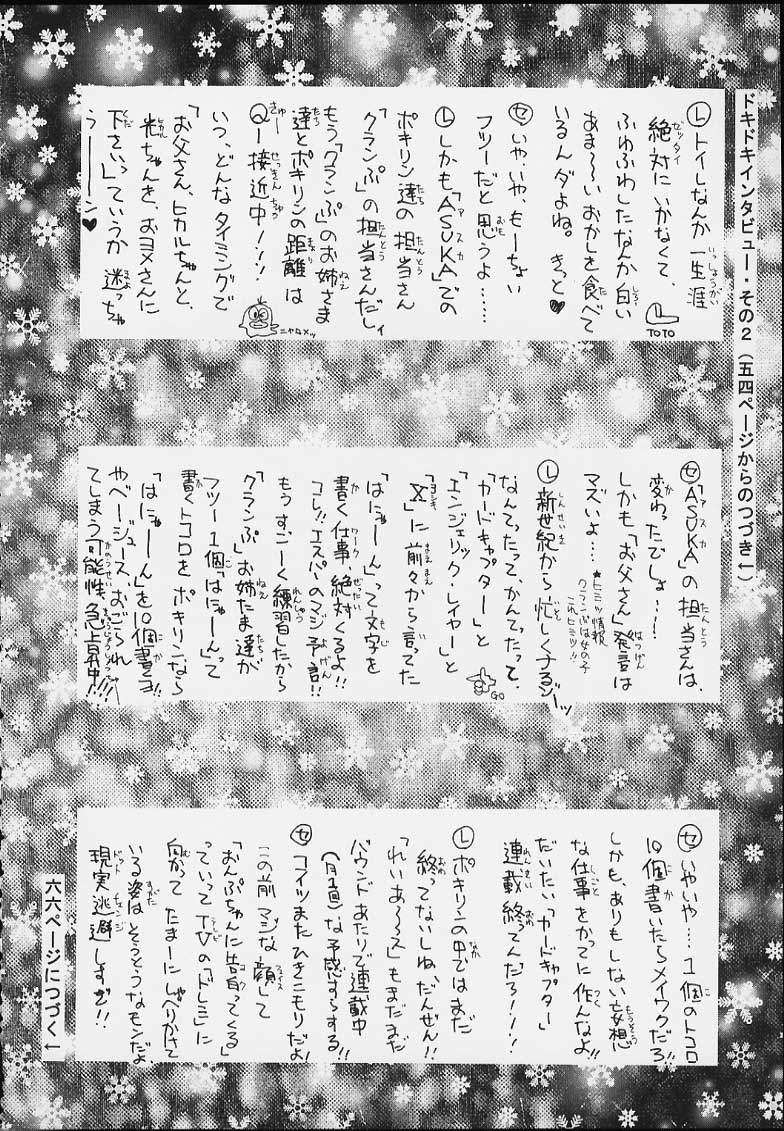 ドキドキインタビュー・その2（五四ページからのつづき←）
Ⓛトイレなんか一生涯
絶対にいかなくて、
ふわふわしたなんか白い
あま〜いおかしを食べて
いるんダよね。きっと♥
TOTO
㋝いやいや、もーちょい
フツーだと思うよ……
Ⓛしかも「ASUKA」での
ポキリン達の担当さん
「クランぷ」の担当さんだしィ
もう「クランぷ」のお姉さま
達とポキリンの距離は
Q−接近中!!!
いつ、どんなタイミングで
「お父さん、ヒカルちゃんと、
光ちゃんを、およメさんに
下さいっ」ていうか迷っちゃ
うーーーン♥
ニャロメッ
㋝「ASUKA」の担当さんは、
変わったでしょ……
しかも「お父さん」発言は
マズいよ…
★ヒミツ情報
クランぷは女の子
これヒミツ!!
Ⓛ新世紀から忙しくするゾーッ
GO
なんてったってかんてったって、
「カードキャプター」と
「エンジェリック・レイヤー」と
「X」に前々から言ってた
「はにゃーん」って文字を
書く仕事、絶対くるよ!!
コレ!!エスパーのマジ予言!!
もうすごーく練習したから
「クランぷ」お姉たま達が
フツー1個「はにゃーん」って
書くトコロをポキリンなら
「はにゃーん」を10個書くヨ!!
やべージュース、おごられ
てしまう可能性、急上昇中!!!
㋝いやいや…1個のトコロ
10個書いたらメイワクだろ!!
しかも、ありもしない妄想
な仕事をかってに作んなよ!!
だいたい「カードキャプター」
連載終ってんだろ!!!
Ⓛポキリンの中ではまだ
終ってないしね、だんぜん!!
「れいあ〜ス」もまだまだ
バウンドあたりで連載中
(月1回)な予感すらする!!
㋝コイツまたひきこもりだよ!
この前マジな顔して
「おんぷちゃんに告ってくる」
っていってTVの「ドレミ」に
向かってたまーにしゃべりかけて
いる姿はそうとうなモンだよ
現実逃避しすぎ!!
六六ページにつづく←